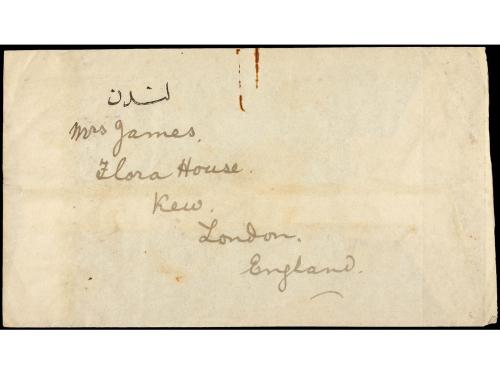 لندن
Mrs James.
Flora House.
Kew.
London.
England.